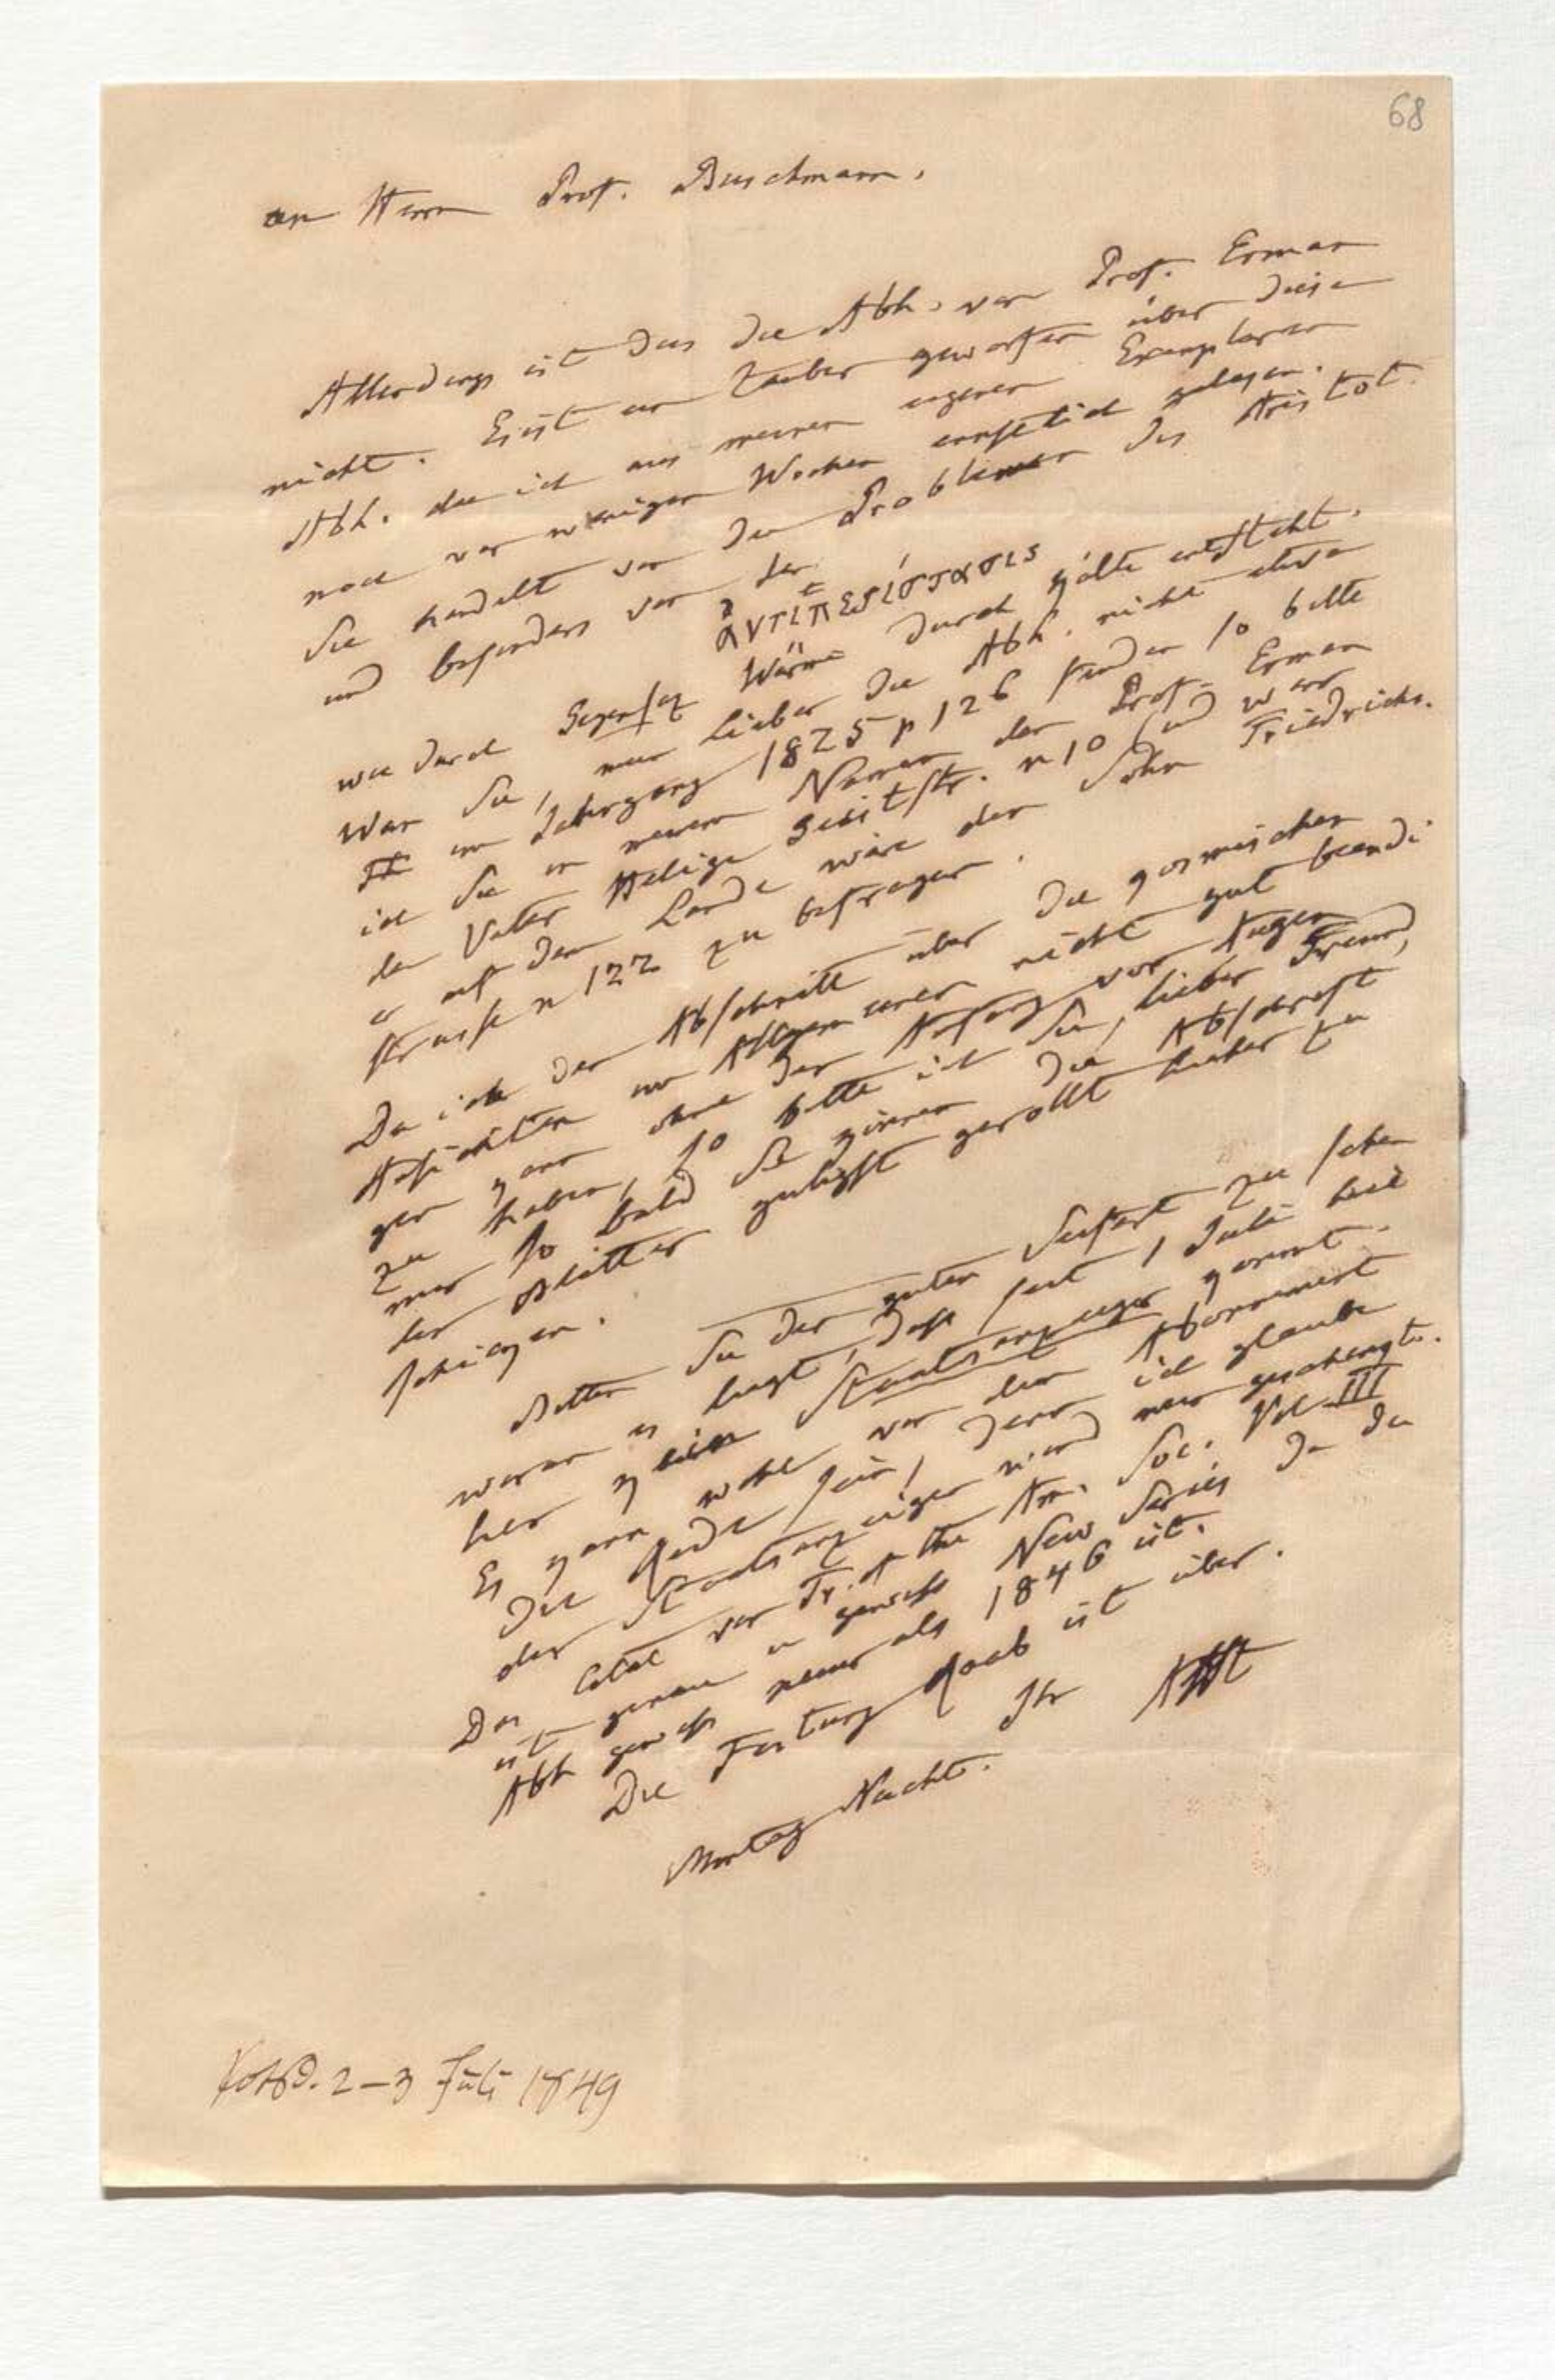 68
an Herrn Prof. Buschmann.
Allerdings ist das die Abh. von Prof. Erman
nicht. Es ist ein Zauber geworfen über diese
Abh. die ich aus meinem eigenen Exemplare
noch vor wenigen Wochen ernstlich gelesen.
Sie handelt von den Problemen des Aristot.
und besonders von der
ἀντιπερίστασις
wie durch Gegensaz Wärme durch Kälte entsteht.
War Sie, mein Lieber die Abh. nicht etwa
im Jahrgang 1825 p 126 finden so bitte
ich Sie in meinem Namen den Prof. Erman
den Vater Heilige Geiststr. n 10 (und wäre
er auf dem Lande wäre der Sohn Friedrichs.
strasse n 122 zu befragen.
Da ich den Abschnitt über die kosmischen
Ansichten im Allgemeinen nicht gut beendi
gen kann ohne den Anfang vor Augen
zu haben, so bitte ich Sie, lieber Freund,
mir so bald Sie können die Abschrift
der Blätter gütigst gerollt hieher zu
schikken.
Bitten Sie den guten Seifert zu sehen
woran es liegt, dass seit 1 Juli hie
her kein Staatsanzeiger kommt.
Es kann wohl von dem Abonnement
die Rede sein, denn ich glaube
der Staatsanzeiger wird mir geschenkt.
Das Citat von Tr. of the Am. Soc. Vol III
ist genau u gewiss New Series da die
Abh gewiss neuer als 1846 ist.
Die Festung Raab ist über.
Ihr AHt
Montag Nacht.
Potsd. 2–3 Juli 1849